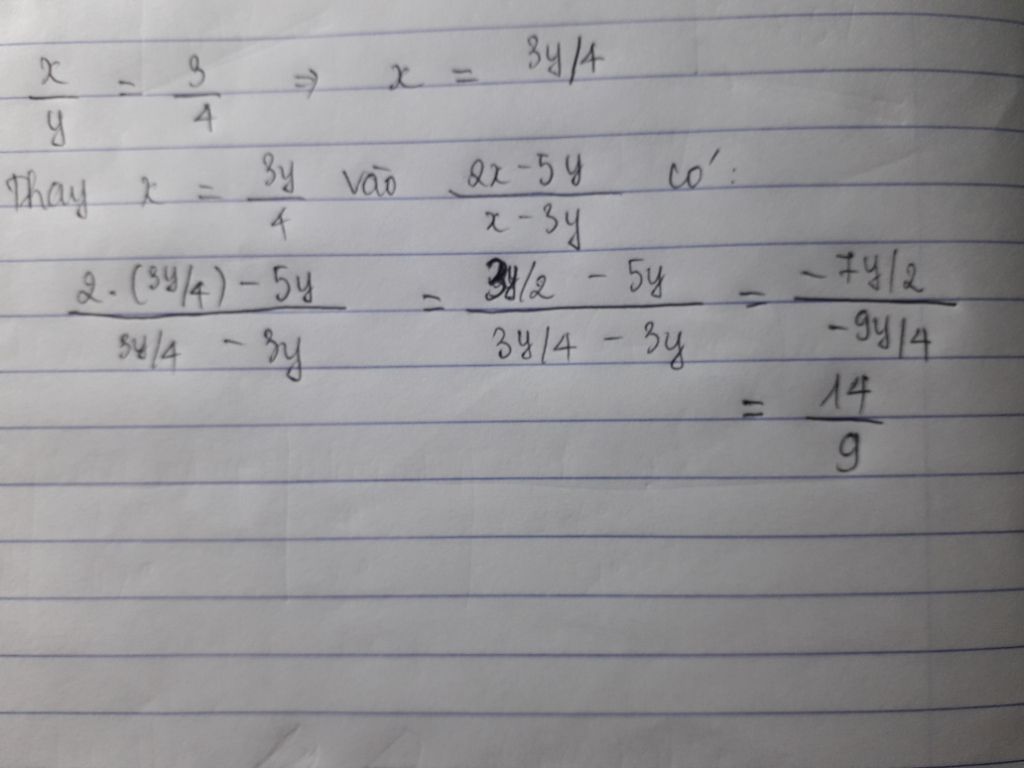 x/y = 3/4 ⇒ x = 3y/4
Thay x = 3y/4 vào (2x - 5y)/(x - 3y) có:
(2.(3y/4) - 5y)/(3y/4 - 3y) = (3y/2 - 5y)/(3y/4 - 3y) = (-7y/2)/(-9y/4)
= 14/9